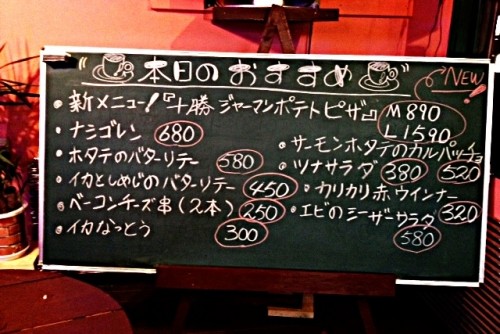 本日のおすすめ
NEW!
・新メニュー!『十勝ジャーマンポテトピザ』 M890
L1590
・ナシゴレン 680
・ホタテのバターソテー 580
・イカとしめじのバターソテー 450
・ベーコンチーズ串(2本) 250
・イカなっとう 300
・サーモンホタテのカルパッチョ 520
・ツナサラダ 380
・カリカリ赤ウインナー 320
・エビのシーザーサラダ 580